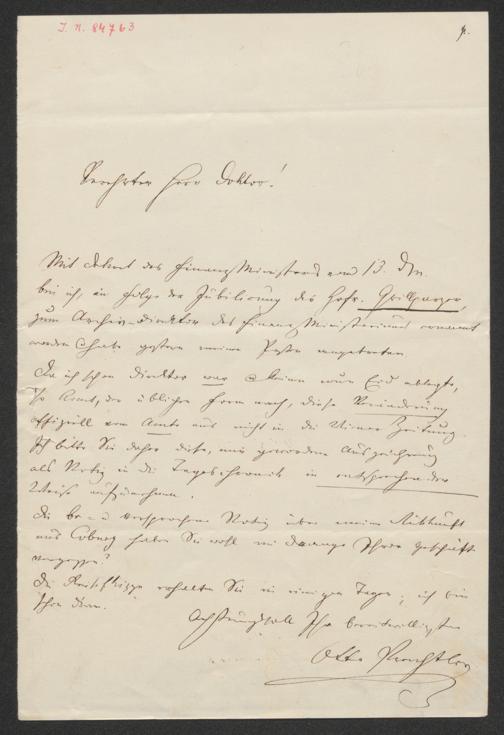 I. N. 84763
Verehrter Herr Doktor!
Mit Dekret des Finanz Ministers vom 13. Dzr.
bin ich, in Folge der Jubilirung des Hofr. Grillparzer,
zum Archiv-Direktor des Finanz Ministeriums ernannt
worden & habe gestern meinen Posten angetreten
Da ich schon Direktor war & keinen neuen Eid ablegte,
so kommt, der üblichen Form nach, diese Veränderung
offiziell vom Amte aus nicht in die Wiener Zeitung.
Ich bitte Sie daher diese, mir gewordene Auszeichnung
als Notiz in die Tageschronik in entsprechender
Weise aufzunehmen.
Die versprochene Notiz über meine Rückkunft
aus Coburg haben Sie wohl im Drange Ihrer Geschäfte
vergessen?
Die Reiseskizze erhalten Sie in einigen Tagen; ich bin
schon dran.
Achtungsvoll Ihr bereitwilligster
Otto Prechtler